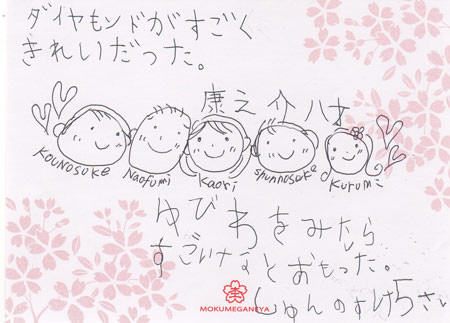 ダイヤモンドがすごく
きれいだった。
康之介八才
KOUNOSUKE Naofumi Kaori Shunnosuke Kurumi
ゆびわをみたら
すごいなとおもった。
しゅんのすけ5さい
MOKUMEGANEYA